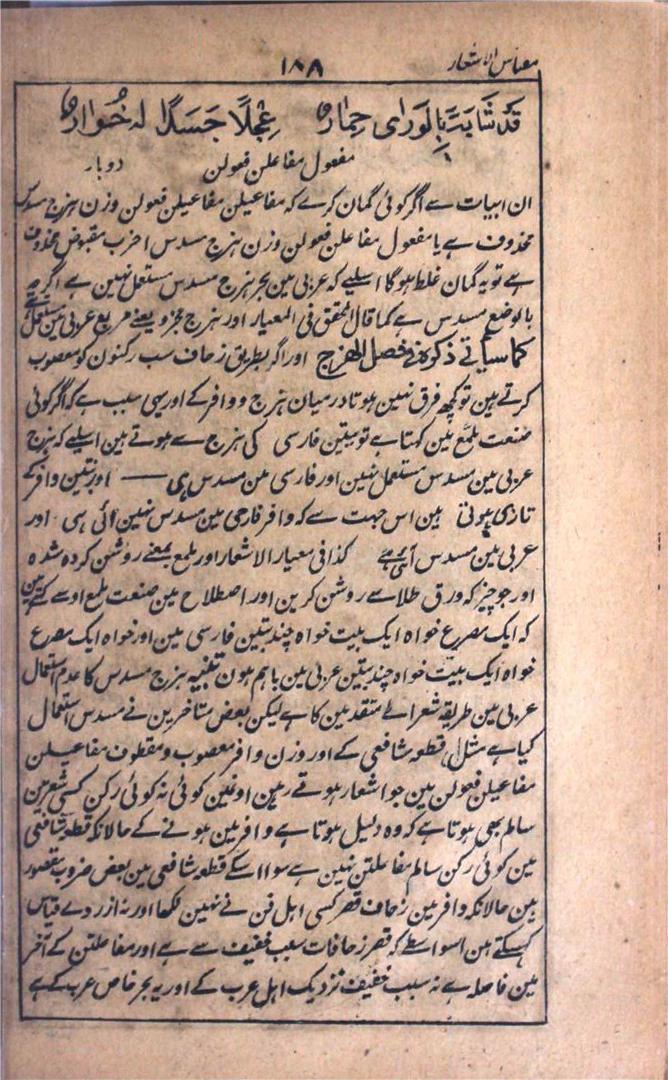 مقیاس الاشعار
۱۸۸
قَدْ شَابَتْ بِالوَرای حِمارٌ عِجْلًا جَسَدًا لہ خُوارٌ
مفعول مفاعلن فعولن دوبار
ان ابیات سے اگر کوئی گمان کرے کہ مفاعیلن مفاعیلن فعولن وزن ہزج مسدس
محذوف ہے یا مفعول مفاعلن فعولن وزن ہزج مسدس اخرب مقبوض محذوف
ہے تو یہ گمان غلط ہوگا اسلیے کہ عربی مین بحر ہزج مسدس مستعمل نہین ہے اگرچہ
بالوضع مسدس ہے کما قال المحقق فی المعیار اور ہزج مجزو یعنے مربع عربی مین مستعمل ہے
کما سیأتے ذکرہ فے فصل الھزج اور اگر بطریق زحاف سب رکنون کو معصوب
کرتے ہین تو کچھ فرق نہین ہوتا درمیان ہزج و وافر کے اور یہی سبب ہے کہ اگر کوئی
صنعت ملمع مین کہتا ہے تو بیتین فارسی کی ہزج سے ہوتے ہین اسلیے کہ ہزج
عربی مین مسدس مستعمل نہین اور فارسی مین مسدس ہی — اور بتین وافر کے
تازی ہوتی ہین اس جہت سے کہ وافر فارسی مین مسدس نہین آئی ہی اور
عربی مین مسدس آئی ہے کذا فی معیار الاشعار اور ملمع بمعنے روشن کردہ شدہ
اور جو چیز کہ ورق طلا سے روشن کرین اور اصطلاح مین صنعت ملمع اوسے کہتے ہین
کہ ایک مصرع خواہ ایک بیت خواہ چند بتین فارسی مین اور خواہ ایک مصرع
خواہ ایک بیت خواہ چند بتین عربی مین باہم ہون تنبیہ ہزج مسدس کا عدم استعمال
عربی مین طریقہ شعرائے متقدمین کا ہے لیکن بعض متاخرین نے مسدس استعمال
کیا ہے مثل قطعہ شافعی کے اور وزن وافر معصوب و مقطوف مفاعیلن
مفاعیلن فعولن مین جو اشعار ہوتے ہین اونمین کوئی نہ کوئی رکن کسی شعر مین
سالم بھی ہوتا ہے کہ وہ دلیل ہوتا ہے وافر مین ہونے کے حالانکہ قطعہ شافعی
مین کوئی رکن سالم مفاعلتن نہین ہے سوا اسکے قطعہ شافعی مین بعض ضروب مقصور
ہین حالانکہ وافر مین زحاف قصر کسی اہل فن نے نہین لکھا اور نہ از روے قیاس
کہسکتے ہین اسواسطے کہ قصر زحافات سبب خفیف سے ہے اور مفاعلتن کے آخر
مین فاصلہ ہے نہ سبب خفیف نزدیک اہل عرب کے اور یہ بحر خاص عرب کے ہے